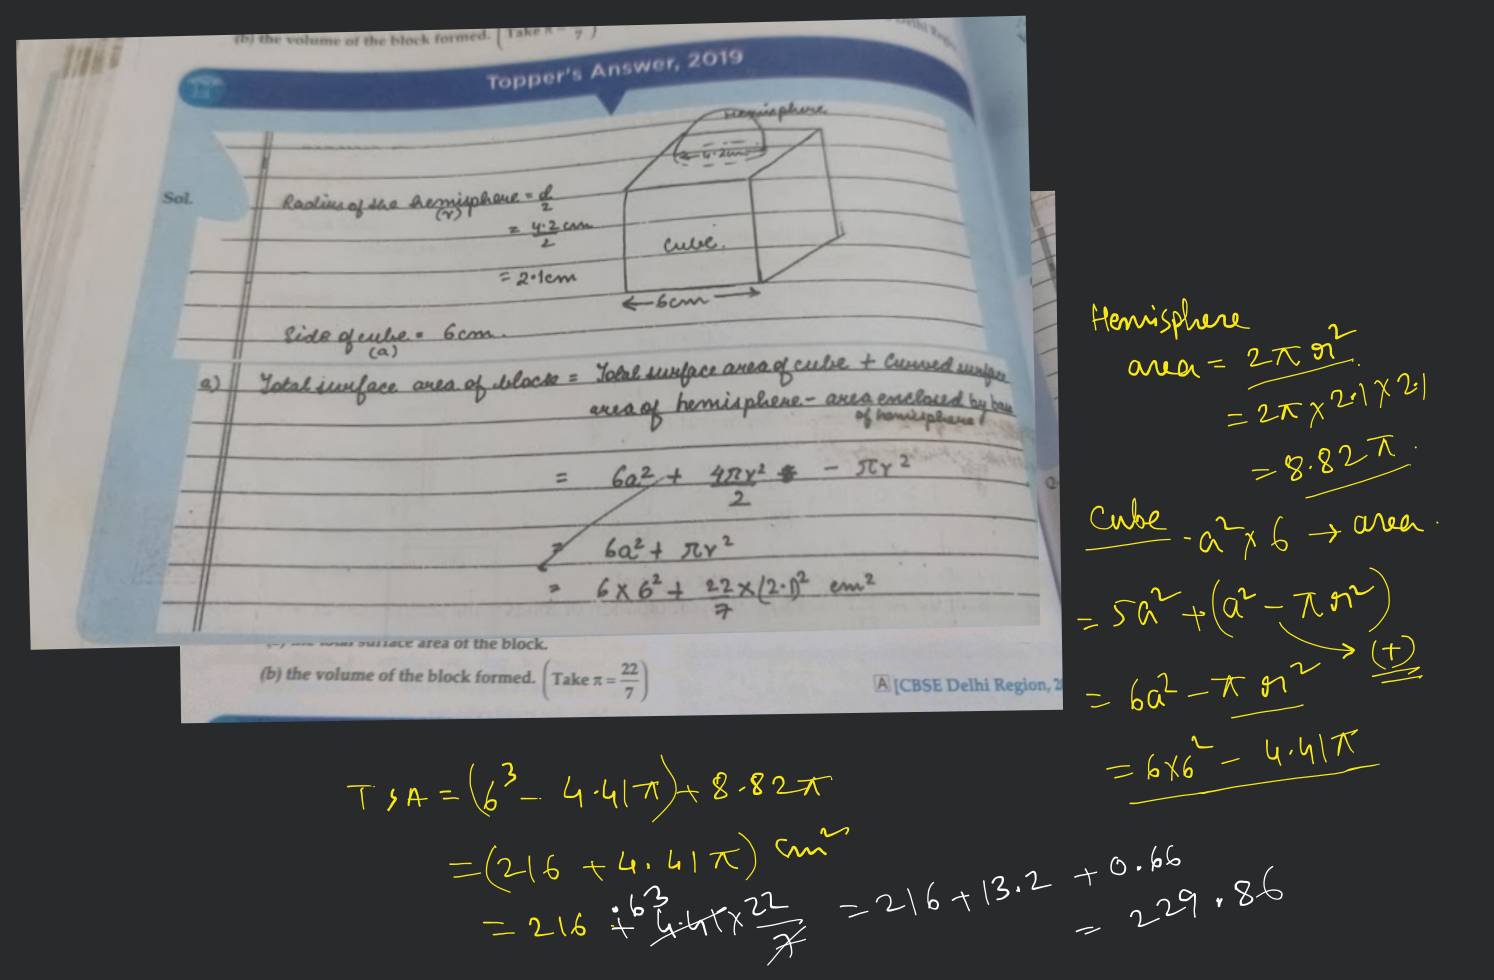 (b) the volume of the block formed. (Take π = 7)
Topper's Answer, 2019
Hemisphere
4.2cm
Sol.
Radius of the hemisphere = d/2
(r)
= 4.2 cm/2
= 2.1cm
cube.
6cm
Side of cube = 6cm.
(a)
a) Total surface area of block = Total surface area of cube + Curved surface
area of hemisphere - area enclosed by base
of hemisphere
= 6a² + 4πr²/2 - πr²
= 6a² + πr²
= 6 × 6² + 22/7 × (2.1)² cm²
surface area of the block.
(b) the volume of the block formed. (Take π = 22/7)
A [CBSE Delhi Region, 2
Hemisphere
area = 2πr²
= 2π × 2.1 × 2.1
= 8.82π.
Cube - a² × 6 → area.
= 5a² + (a² - πr²)
(+)
= 6a² - πr²
= 6×6² - 4.41π
TSA = (6³ - 4.41π) + 8.82π
= (216 + 4.41π) cm²
.63
= 216 + 4.41 × 22/7 = 216 + 13.2 + 0.66
= 229.86